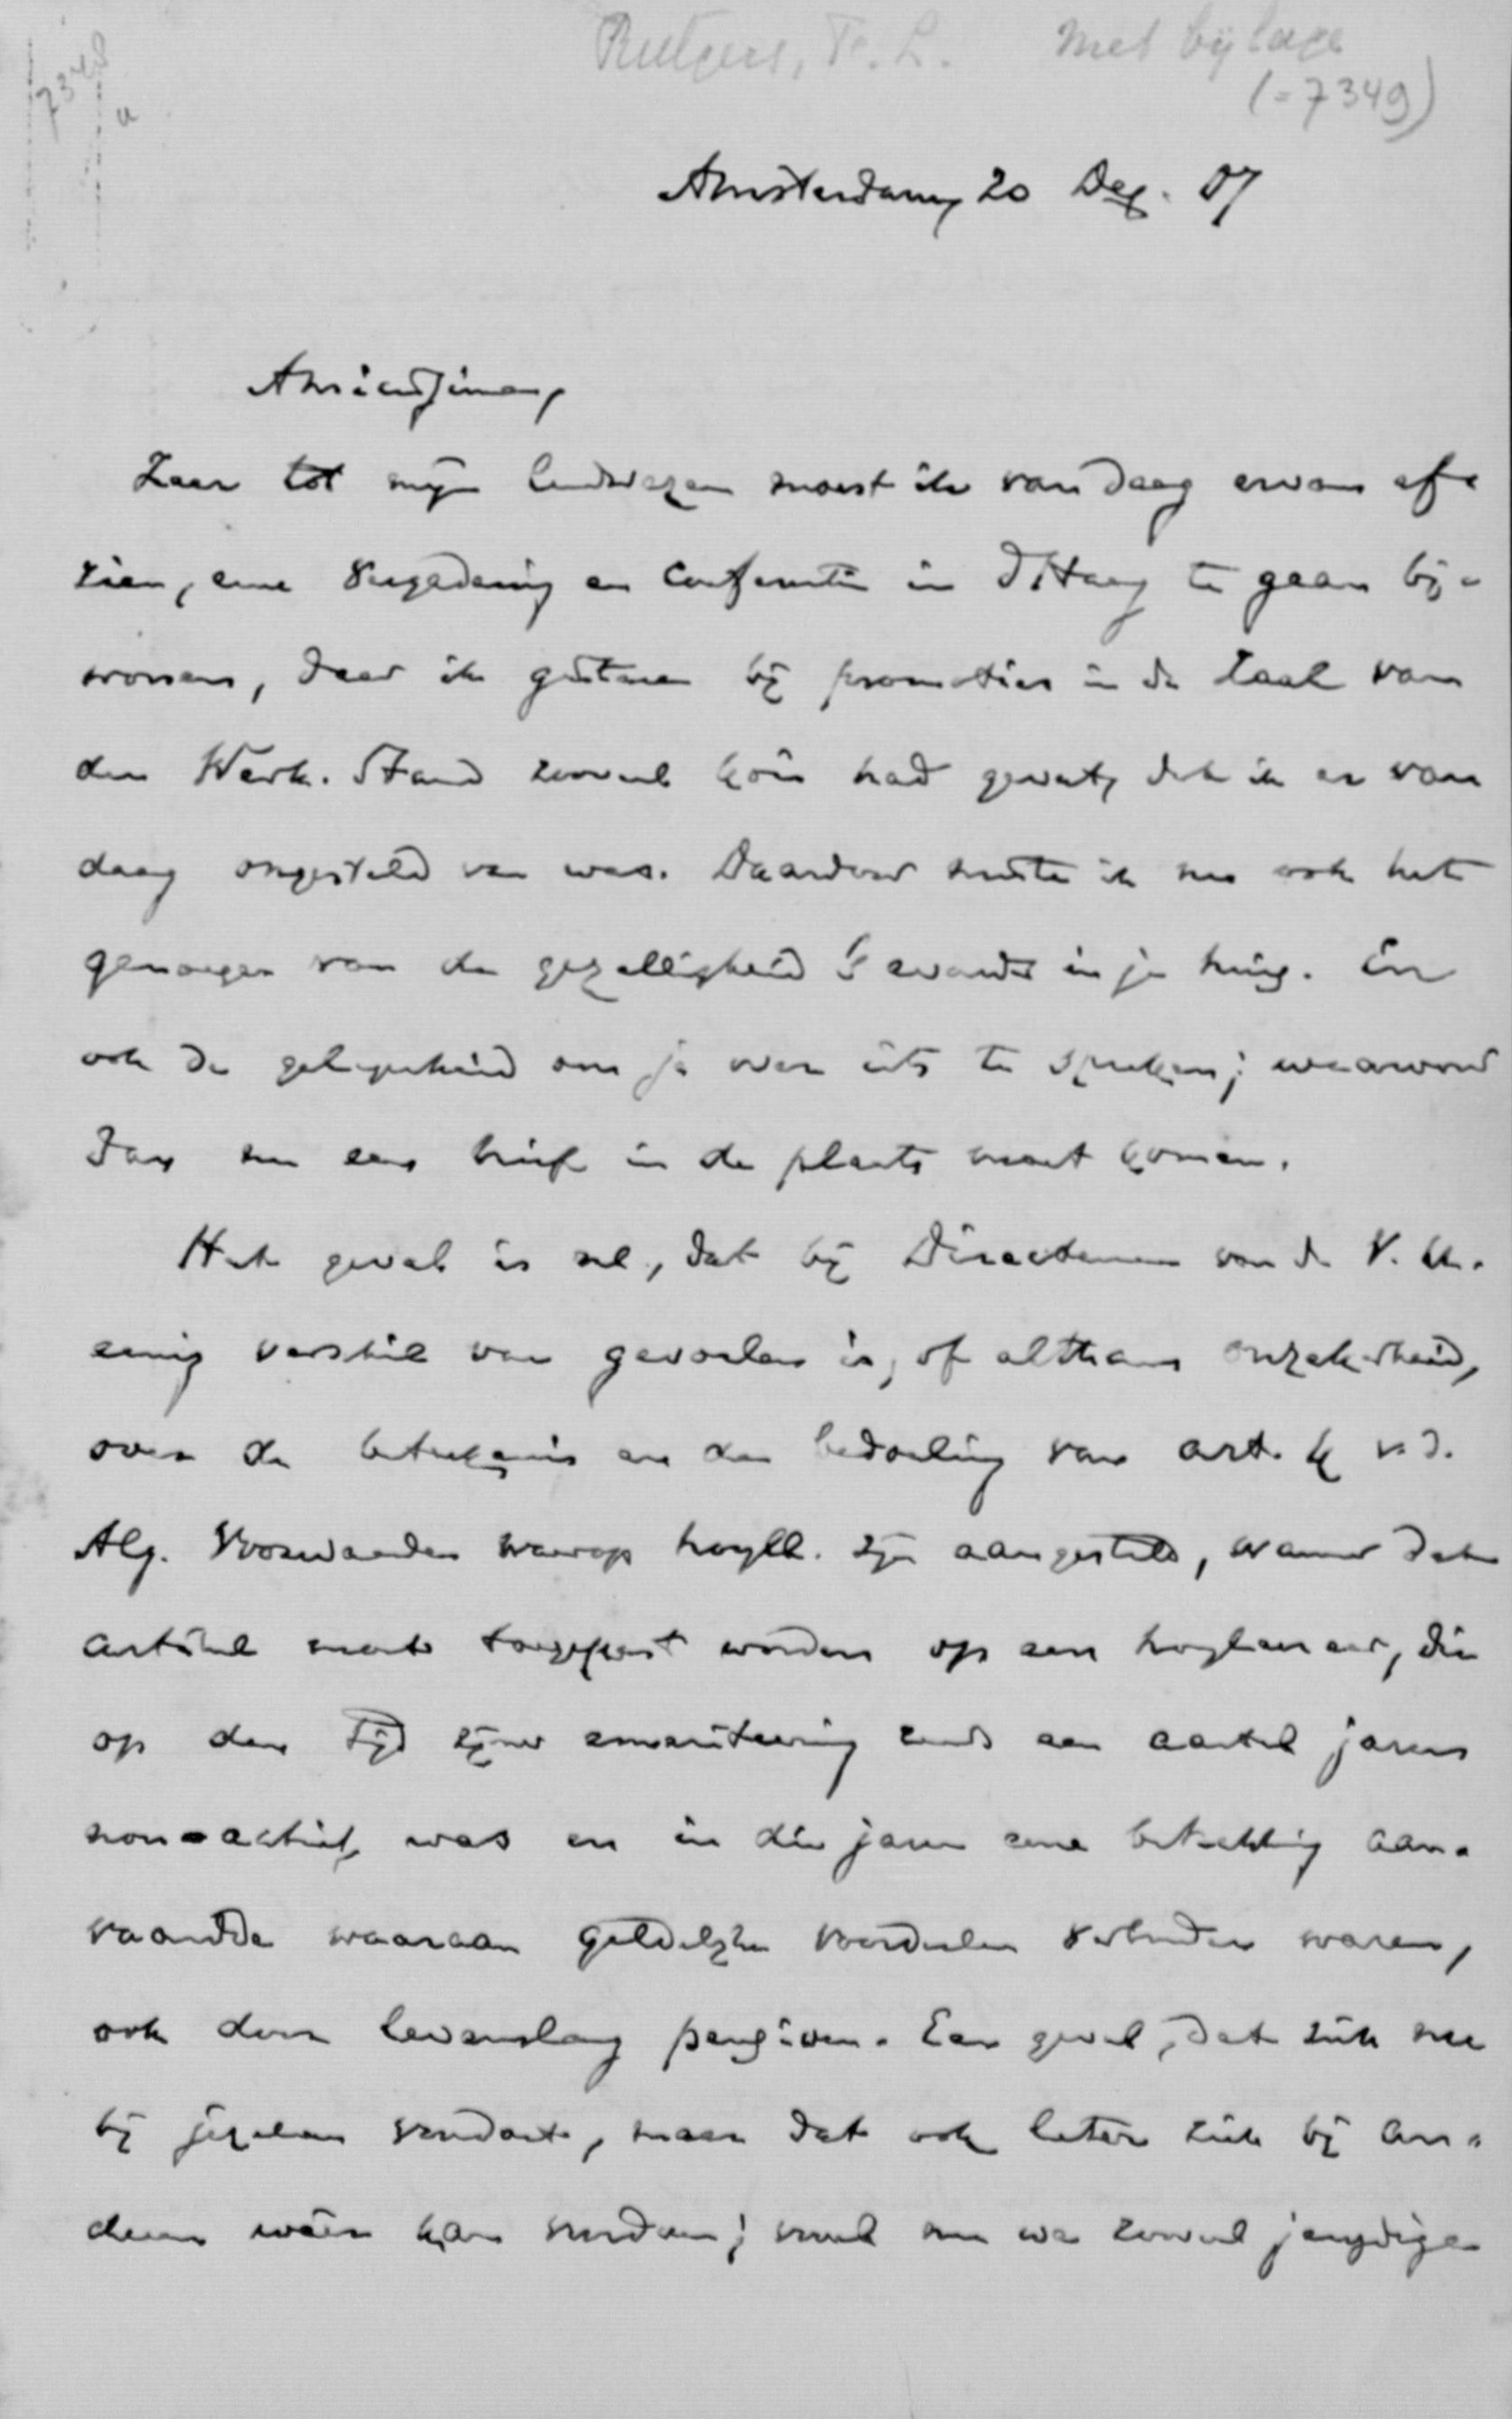 Rutgers, F. L. Met bijlage
(=7349)
7348
a
Amsterdam, 20 Dec. 07
Amicissime,
Zeer tot mijn leedwezen moest ik van daag ervan af-
zien, eene vergadering en conferentie in d Haag te gaan bij-
wonen, daar ik gisteren bij promoties in de Zaal van
den Werk. Stand zooveel kou had gevat, dat ik er van
daag ongesteld van was. Daardoor miste ik nu ook het
genoegen van de gezelligheid 's avonds in je huis. En
ook de gelegenheid om je over iets te spreken; waarvoor
dan nu een brief in de plaats moet komen.
Het geval is nl., dat bij Directeuren van de V. U.
eenig verschil van gevoelen is, of althans onzekerheid,
over de beteekenis en de bedoeling van art. k v. d.
Alg. Voorwaarden waarop hoogll. zijn aangesteld, wanneer dat
artikel moet toegepast worden op een hoogleeraar, die
op den tijd zijner emeriteering reeds een aantal jaren
non-actief was en in die jaren eene betrekking aan-
vaardde waaraan geldelijke voordeelen verbonden waren,
ook door levenslang pensioen. Een geval, dat zich nu
bij jezelven voordoet, maar dat ook later zich bij an-
deren weer kan voordoen; vooral nu we zooveel jeugdige